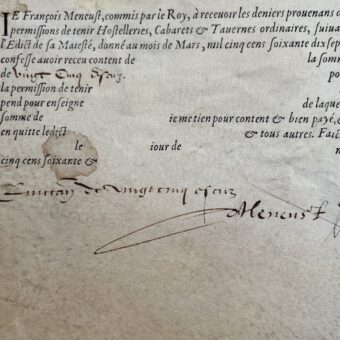 IE François Meneust, commis par le Roy, à receuoir les deniers prouenans d
permissions de tenir Hostelleries, Cabarets & Tauernes ordinaires, suiua
l'Edict de sa Maiesté, donné au mois de Mars, mil cinq cens soixante dixsep
confesse auoir receu content de la somm
de vingt cinq escuz
la permission de tenir
pend pour enseigne de laque
somme de ie me tien pour content & bien payé, &
en quitte ledict & tous autres. Faic
le iour de
cinq cens soixante &
Quictan de vingt cinq escuz
Meneust